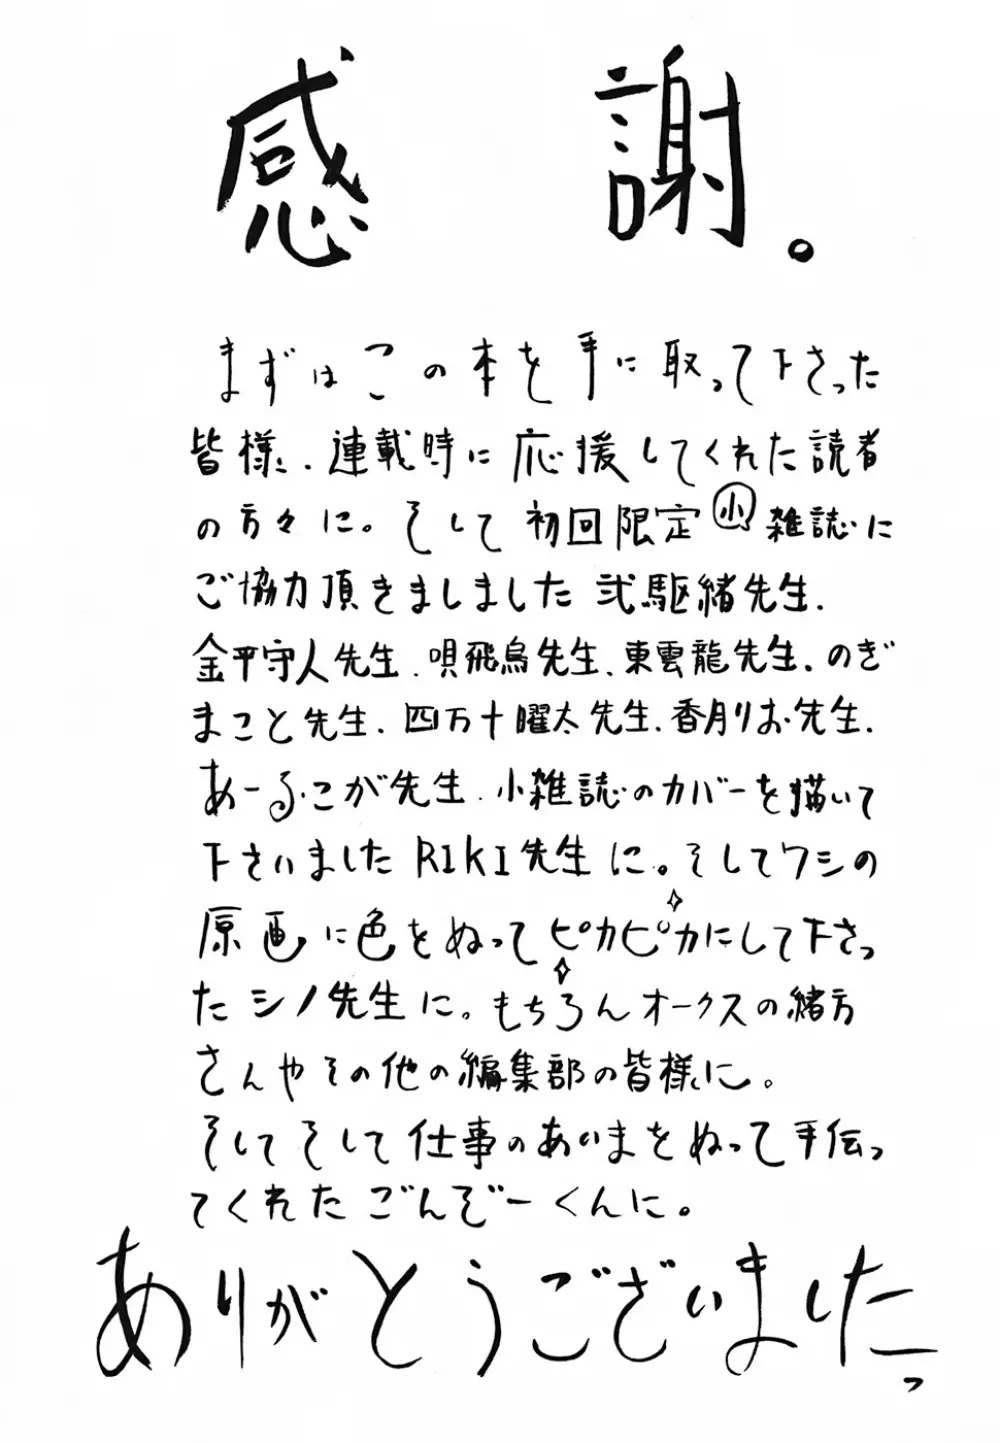 感謝。
まずはこの本を手に取って下さった
皆様、連載時に応援してくれた読者
の方々に。そして初回限定小雑誌に
ご協力頂きましました弐駆緒先生、
金平守人先生、唄飛鳥先生、東雲龍先生、のぎ
まこと先生、四万十曜太先生、香月りお先生、
あーる・こが先生、小雑誌のカバーを描いて
下さいました RIKI先生に。そしてワシの
原画に色をぬってピカピカにして下さっ
たシノ先生に。もちろんオークスの緒方
さんやその他の編集部の皆様に。
そしてそして仕事のあいまをぬって手伝っ
てくれたごんぞーくんに。
ありがとうございましたっ